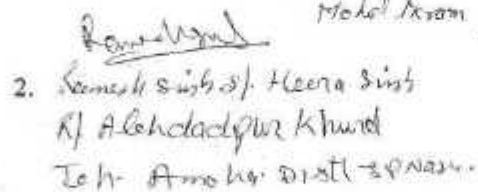 Mohd Akram
2. Somesh Singh s/. Heera Singh
R/ Alehdadpur Khurd
Teh. Amroha Distt JPNagar.